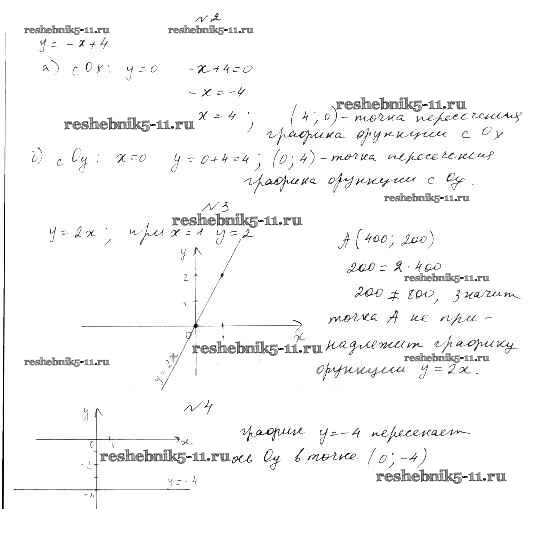 №2
reshebnik5-11.ru reshebnik5-11.ru
y = -x+4
а) с Ox: y=0 -x+4=0
-x=-4
reshebnik5-11.ru x = 4; (4; 0) - точка пересечения
reshebnik5-11.ru
графика функции с Ox
б) с Oy: x=0 y=0+4=4; (0; 4) - точка пересечения
графика функции с Oy.
reshebnik5-11.ru
№3
reshebnik5-11.ru
y=2x; при x=1 y=2
A(400; 200)
200 = 2·400
reshebnik5-11.ru
200 ≠ 800, значит
точка A не при-
надлежит графику
reshebnik5-11.ru
функции y=2x.
y
2
1
0
x
y=2x
reshebnik5-11.ru
reshebnik5-11.ru
№4
график y=-4 пересекает
ось Oy в точке (0; -4)
reshebnik5-11.ru
reshebnik5-11.ru
0 1 x
y=-4
-4